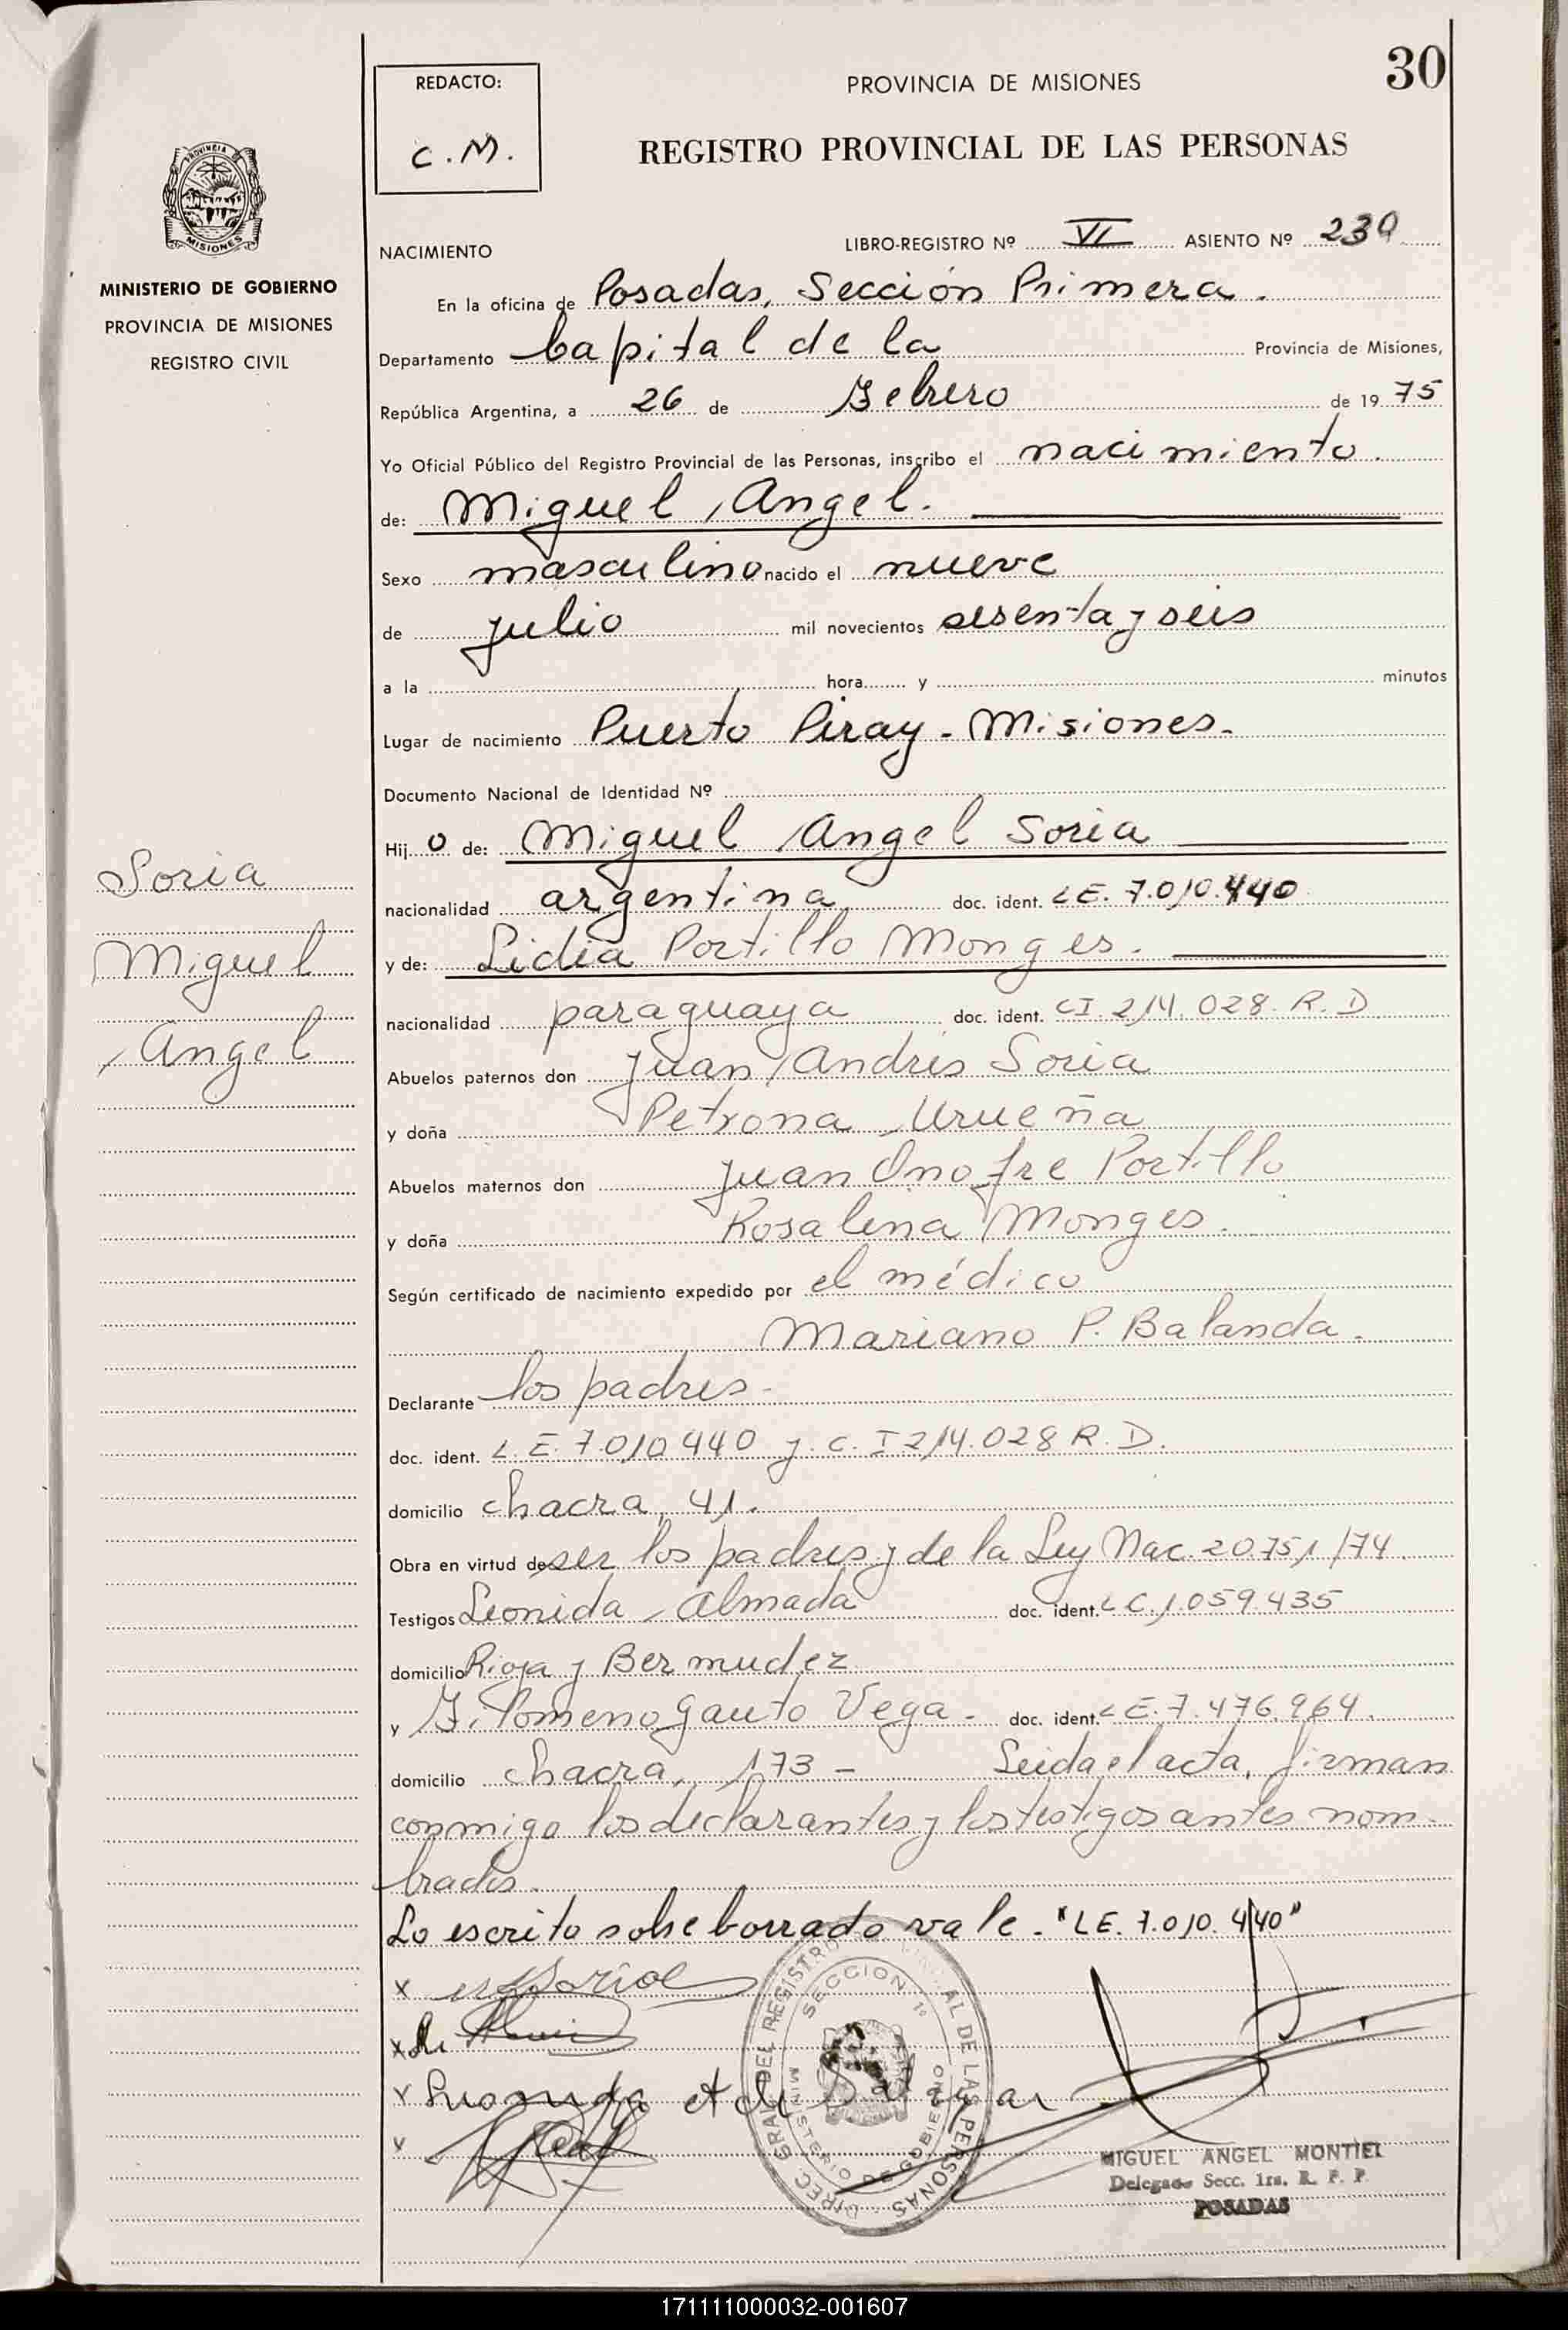 30
REDACTO:
C.M.
PROVINCIA DE MISIONES
REGISTRO PROVINCIAL DE LAS PERSONAS
PROVINCIA DE
MISIONES
MINISTERIO DE GOBIERNO
PROVINCIA DE MISIONES
REGISTRO CIVIL
NACIMIENTO
LIBRO-REGISTRO Nº VI ASIENTO Nº 239
En la oficina de Posadas, Sección Primera.
Departamento Capital de la Provincia de Misiones,
República Argentina, a 26 de Febrero de 19 75
Yo Oficial Público del Registro Provincial de las Personas, inscribo el nacimiento
de: Miguel Angel.
Sexo masculino nacido el nueve
de julio mil novecientos sesenta y seis
a la hora y minutos
Lugar de nacimiento Puerto Piray - Misiones.
Documento Nacional de Identidad Nº
Hij o de: Miguel Angel Soria
nacionalidad argentina doc. ident. LE. 7.010.440
y de: Lidia Portillo Monges.
nacionalidad paraguaya doc. ident. CI 214.028. R.D
Abuelos paternos don Juan Andrés Soria
y doña Petrona Urueña
Abuelos maternos don Juan Onofre Portillo
y doña Rosalina Monges.
Según certificado de nacimiento expedido por el médico
Mariano P. Balanda.
Declarante los padres.
doc. ident. L.E. 7.010.440 y C.I 214.028 R.D.
domicilio chacra 41.
Obra en virtud de ser los padres y de la Ley Nac. 20.751/74
Testigos Leonida Almada doc. ident. L C. 1.059.435
domicilio Rioja y Bermudez
y Filomeno Gauto Vega. doc. ident. L E. 7.476.964.
domicilio chacra, 173 - Leida el acta, firman
conmigo los declarantes y los testigos antes nom-
brados.
Lo escrito sobre borrado vale. "LE. 7.010.440"
Soria
Miguel
Angel
x
x
x
x
DIREC. GRAL. DEL REGISTRO PROVINCIAL DE LAS PERSONAS
SECCION 1º
MINISTERIO DE GOBIERNO
MIGUEL ANGEL MONTIEL
Delegado Secc. 1ra. R. P. P.
POSADAS
171111000032-001607